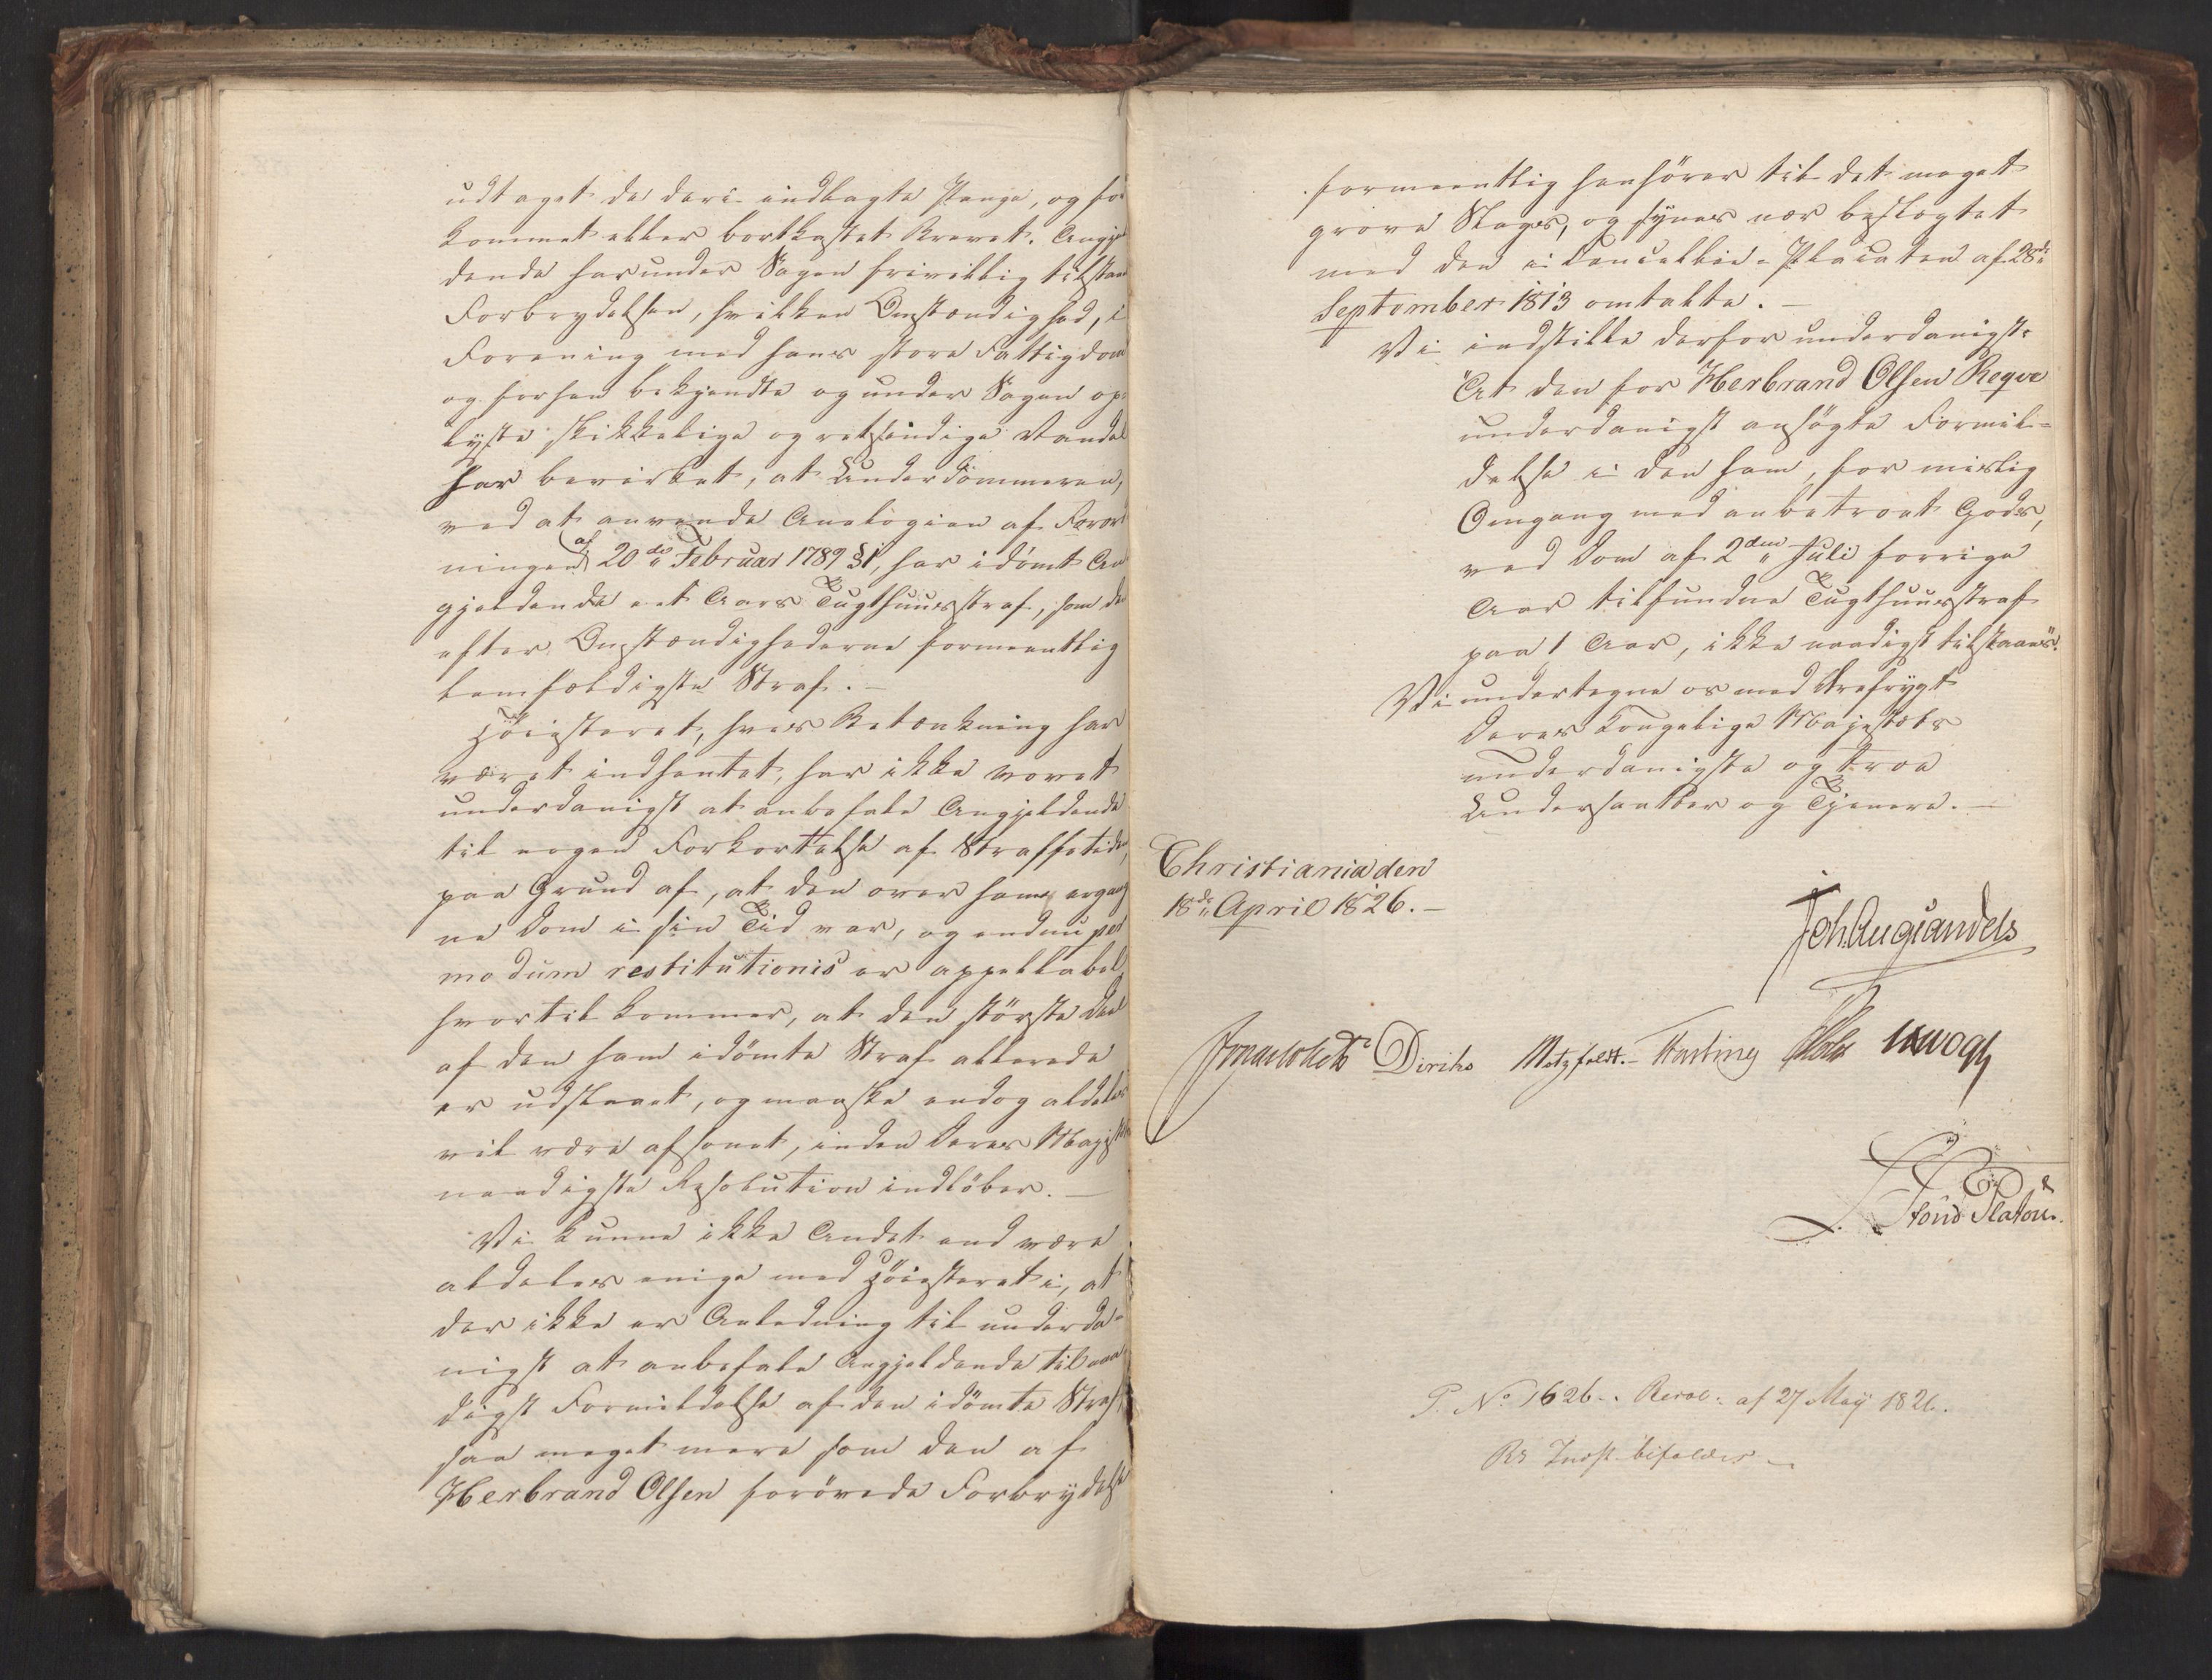 udtaget de deri indlagte Penge, og for
kommet eller bortkastet Brevet. Angjel
dende har under Sagen frivillig tilstaaet
Forbrydelsen, hvilken Omstændighed, i
Forening med hans store Fattigdom
og forhen bekjendte og under Sagen op-
lyste skikkelige og retsindige Vandel
har bevirket, at Underdommeren,
ved at anvende Analogien af Forord
ningen af 20de Februar 1789 §1, har idømt An
gjeldende eet Aars Tugthuusstraf, som den
efter Omstændighederne formeentlig
lemfældigste Straf. —
Høiesteret, hvis Betænkning har
været indhentet, har ikke vovet
underdanigst at anbefale Angjeldende
til nogen Forkortelse af Straffetiden,
paa Grund af, at den over ham ergang
ne Dom i sin Tid var, og endnu per
modum restitutionis er appellabel,
hvortil kommer, at den største Deel
af den ham idømte Straf allerede
er udstaaet, og maaske endog aldeles
vil være afsonet, inden Deres Majestæts
naadigste Resolution indløber. —
Vi kunne ikke Andet end være
aldeles enige med Høiesteret i, at
der ikke er Anledning til underda-
nigst at anbefale Angjeldende til naa
digst Formildelse af den idømte Straf,
saa meget mere som den af
Herbrand Olsen forøvede Forbrydelse
formeentlig henhører til det meget
grove Slags, og synes nær beslægtet
med den i Cancellie-Placaten af 28de
September 1813 omtalte. —
Vi indstille derfor underdanigst:
"At den for Herbrand Olsen Reqve
underdanigst ansøgte Formil-
delse i den ham, for mislig
Omgang med anbetroet Gods,
ved Dom af 2den Juli forrige
Aar tilfundne Tugthuusstraf
paa 1 Aar, ikke naadigst tilstaaes".
Vi undertegne os med Ærefrygt
Deres Kongelige Majestæts
underdanigste og troe
Undersaatter og Tjenere. —
Christiania den
18de April 1826. —
Joh. Aug. Sandels
Jonas Collett Diriks Motzfeldt. Fasting Holst Krogh
Stoud Platou.
P. No 1626. Resol: af 27 May 1826.
Rs Indst bifaldes —